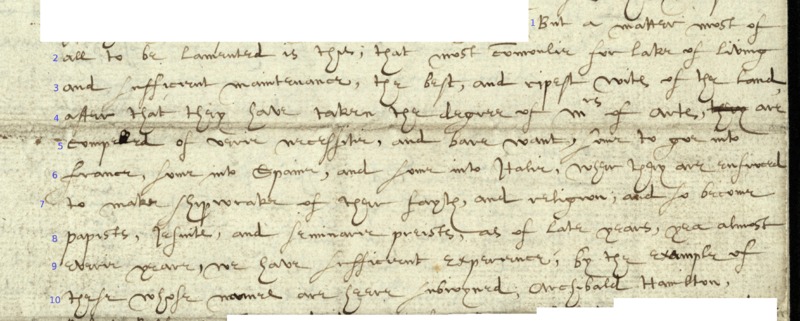 1 But a matter most of
2 all to be lamented is this; that most cōmonlie for lake of living
3 and sufficient maintenance, the best, and ripest wits of the land,
4 after that they have taken the degree of mrs of artes, they are
5 compelled of verie necessitie, and bare want, some to goe into
6 france, some into Spaine, and some into Italie, wher they are enforced
7 to make shipwrake of their fayth, and religion; and so become
8 papists, Jesuite, and seminarie preists, as of late years, yea almost
9 everie yeare, we have sufficient experience, by the example of
10 these whose names are heere subioyned, Archibald Hamilton,